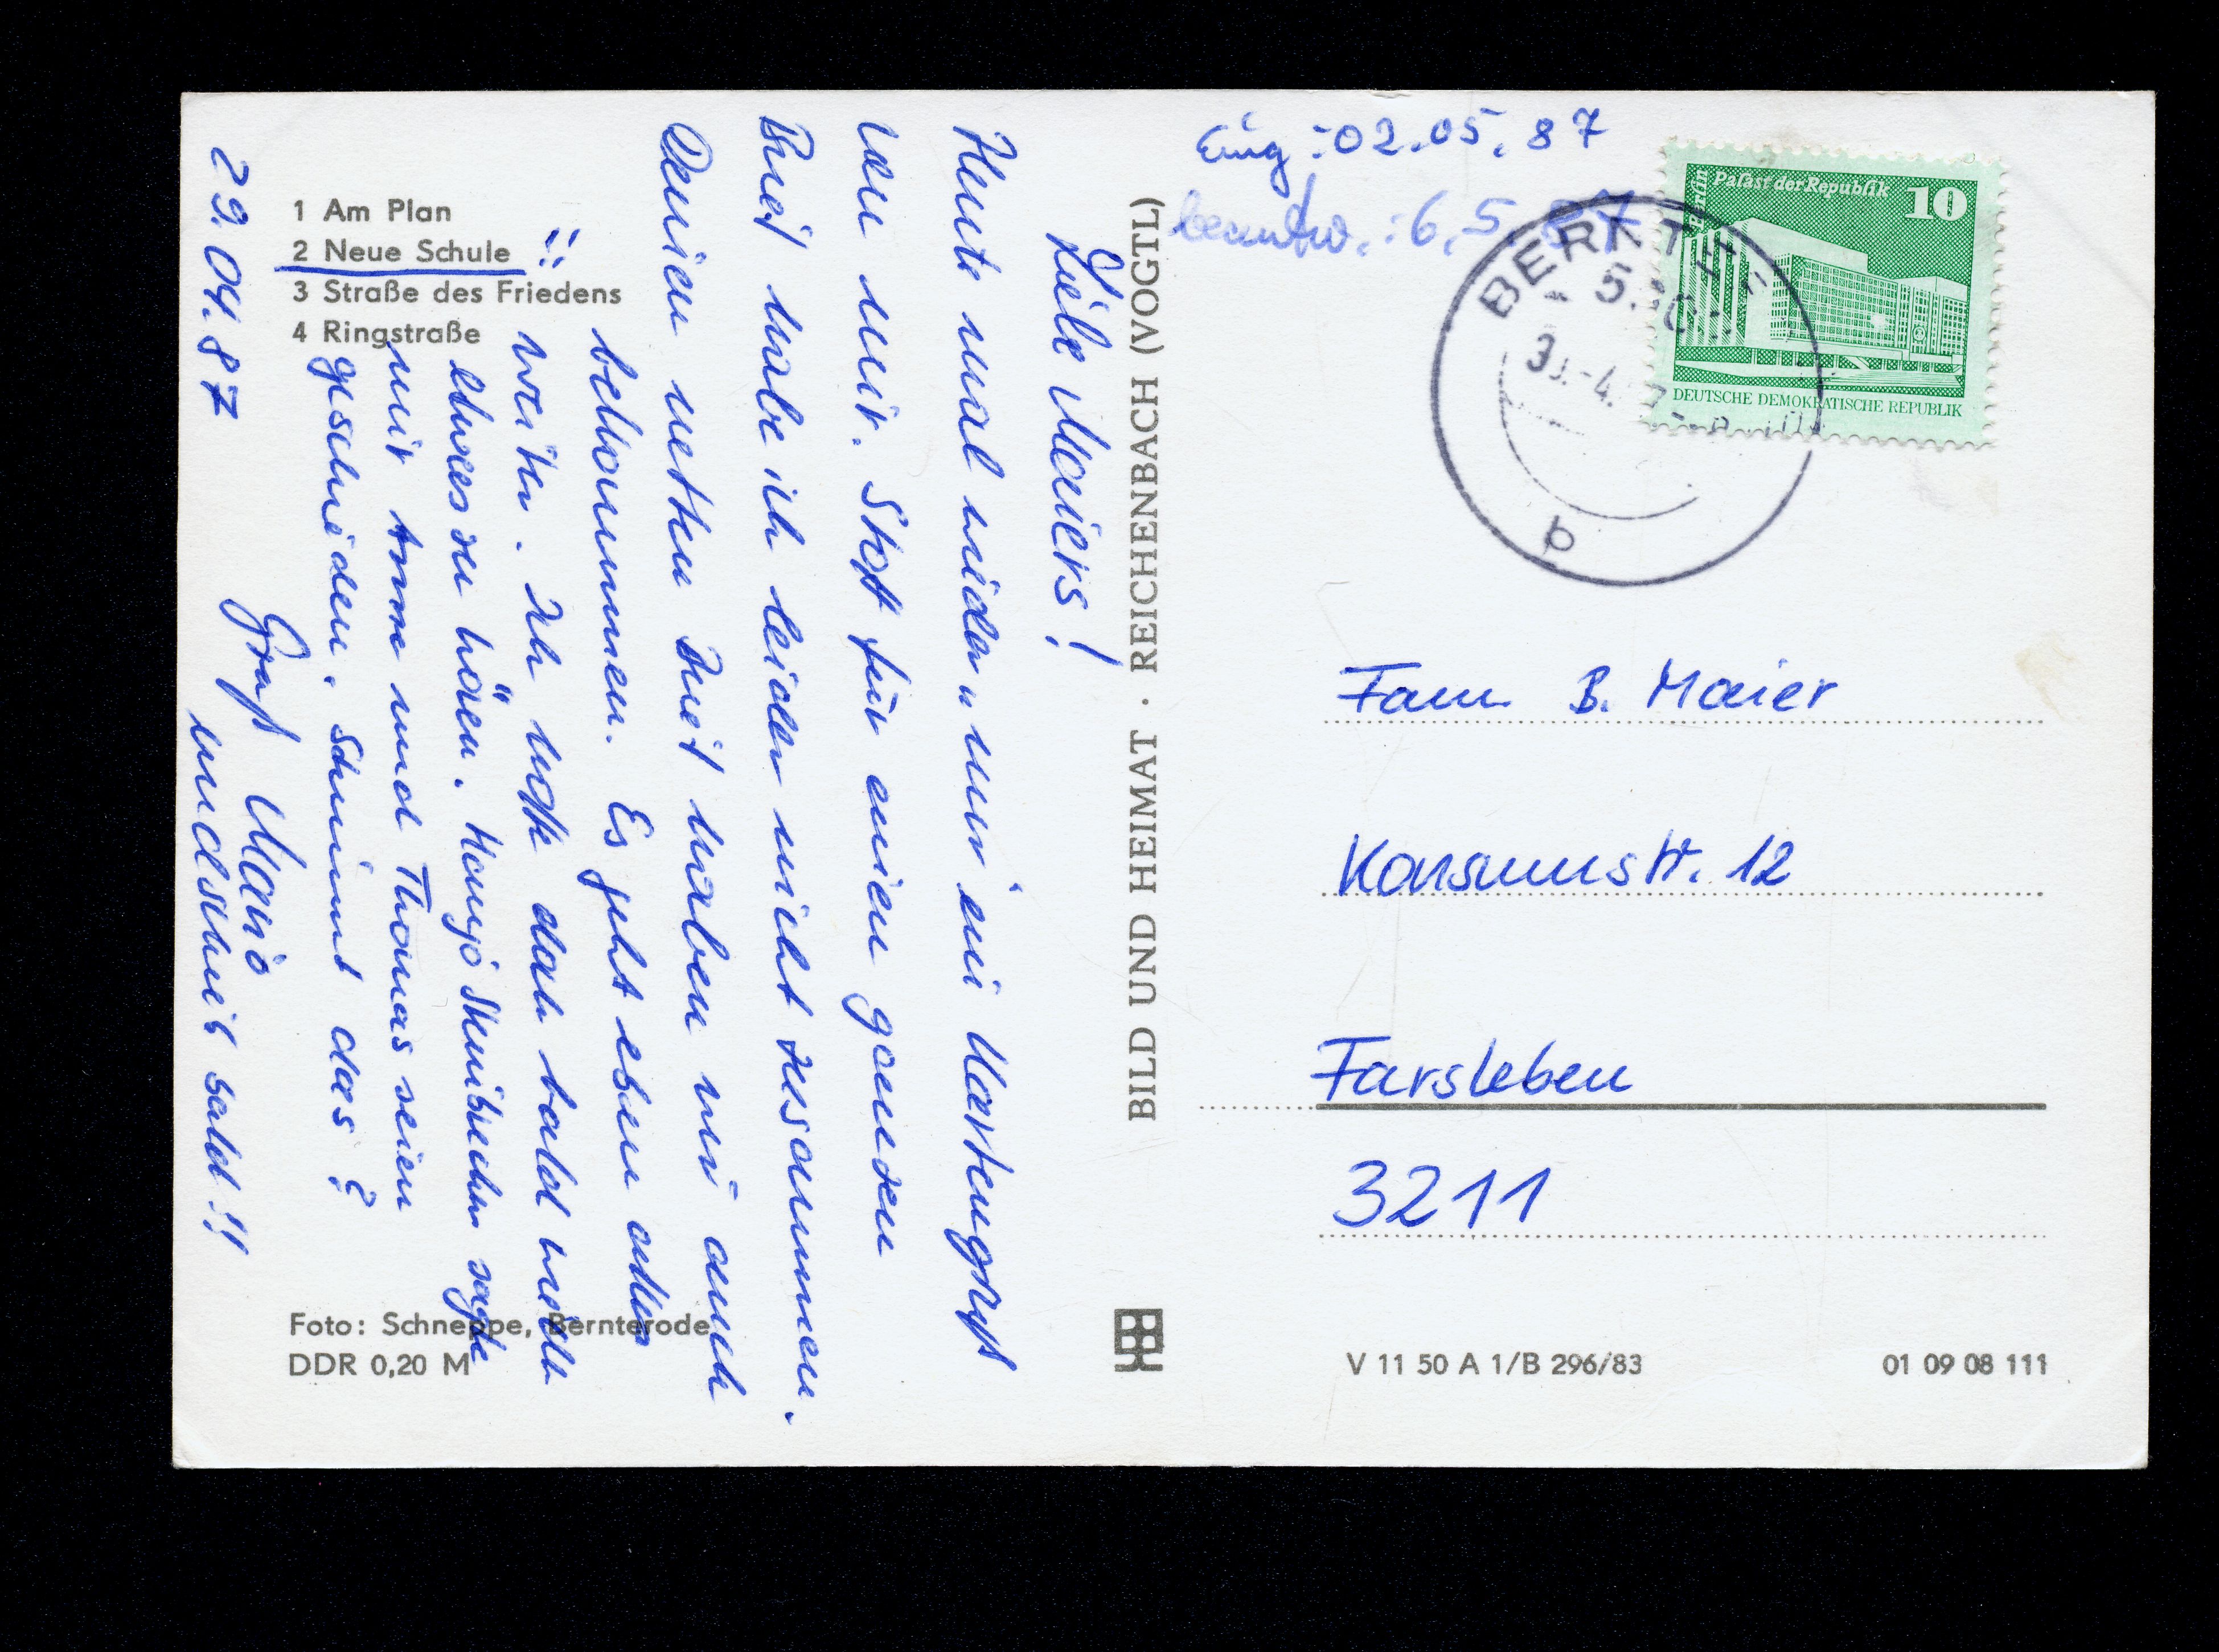 1 Am Plan
2 Neue Schule
3 Straße des Friedens
4 Ringstraße
29.04.87
Liebe Maiers!
Heute mal wieder nur ein Kartengruß
von mir. Stoff für einen ganzen
Brief habe ich leider nicht zusammen.
Deinen netten Brief haben wir auch
bekommen. Es geht eben alles
weiter. Ich hoffe doch bald wieder
etwas zu hören. sagte
mir Anne und Thomas seien
geschieden. Stimmt das?
Gruß Mario
und schreib bald!!
Foto: Schneppe, Bernterode
DDR 0,20 M
BILD UND HEIMAT · REICHENBACH (VOGTL)
Eing.: 02.05.87
beantw.: 6.5.87
Berlin
Palast der Republik 10
DEUTSCHE DEMOKRATISCHE REPUBLIK
b
Fam. B. Maier
Konsumstr. 12
Farsleben
3211
V 11 50 A 1/B 296/83
01 09 08 111